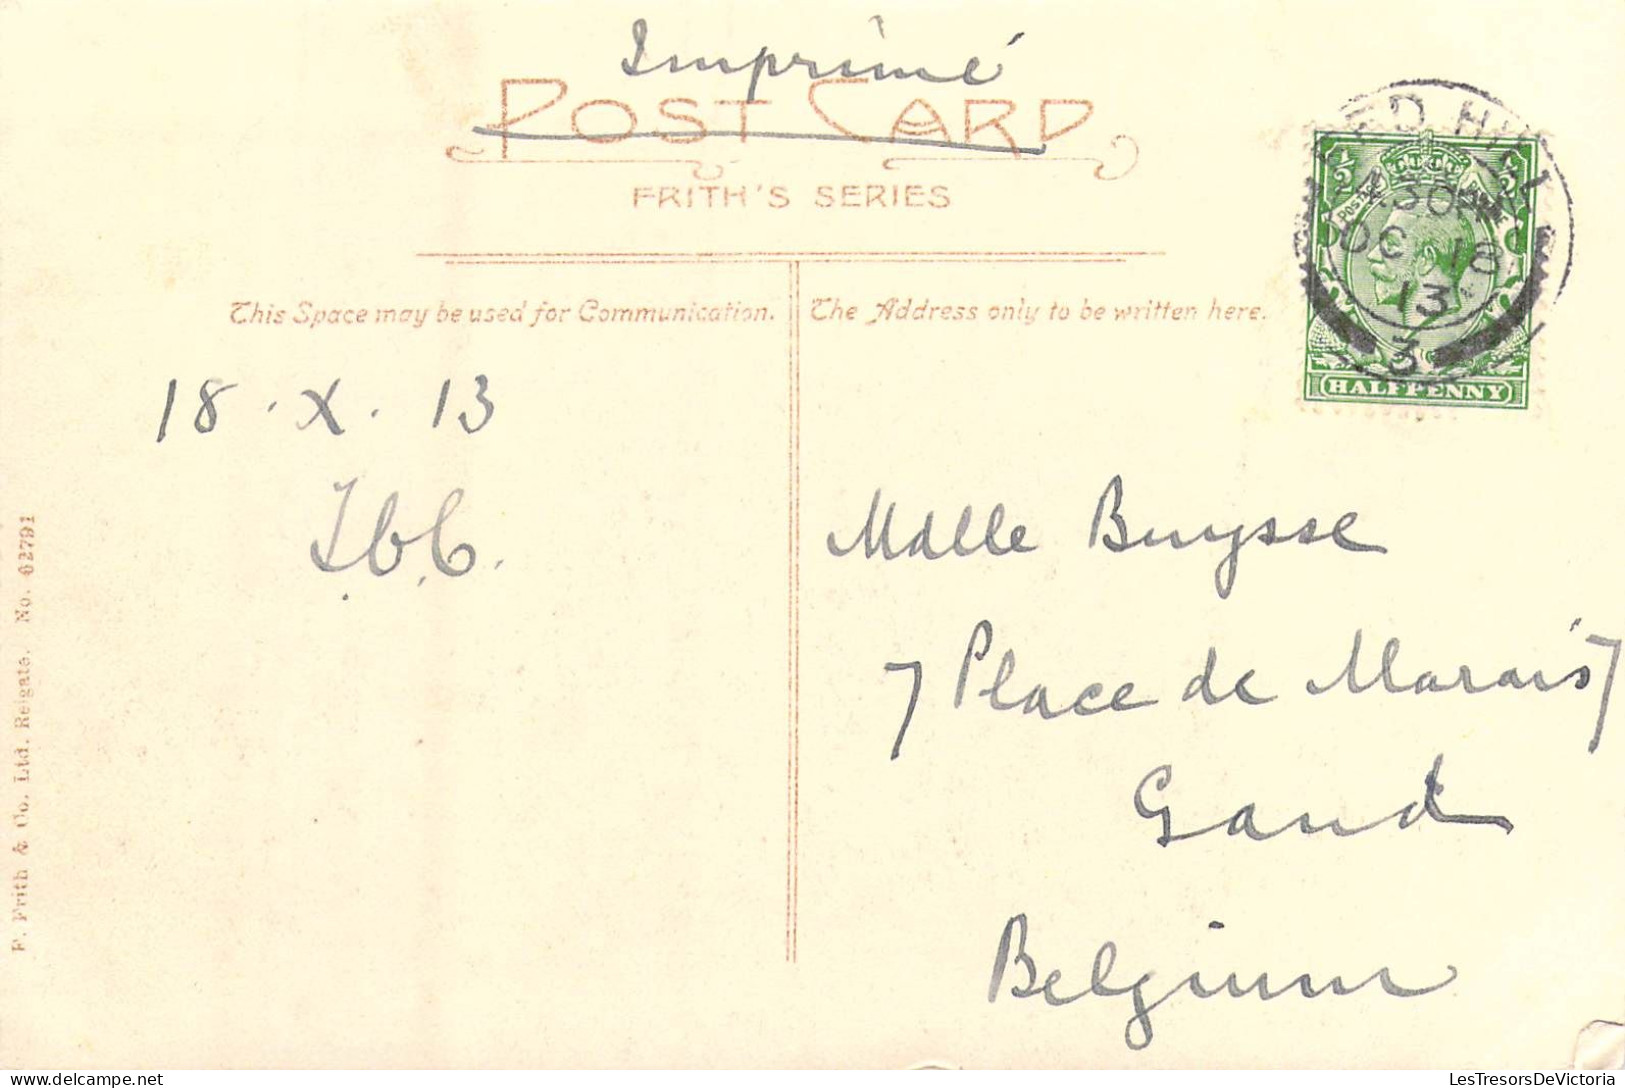 Imprimé
POST CARD
FRITH'S SERIES
This Space may be used for Communication.
The Address only to be written here.
RED HILL
4.30 PM
OC 18
13
3
½
POSTAGE
HALFPENNY
18 . X . 13
Mdlle Buysse
7 Place de Marais 7
Gand
Belgium
F. Frith & Co. Ltd. Reigate. No. 62791
LesTresorsDeVictoria